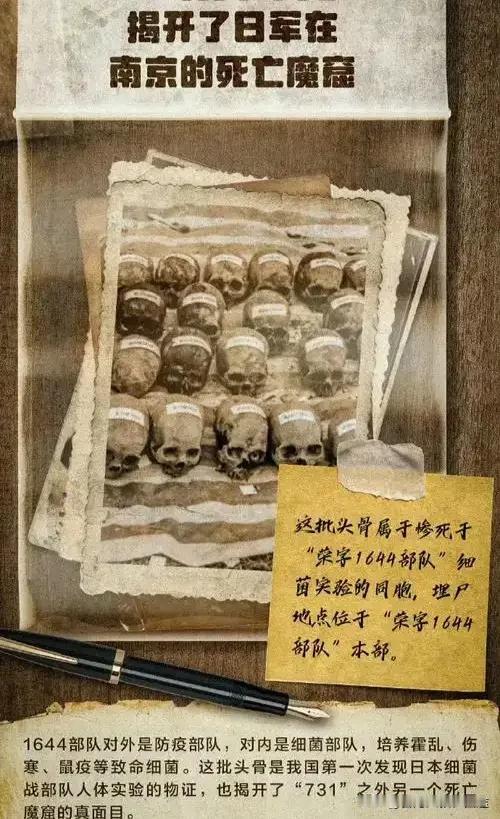 揭开了日军在
南京的死亡魔窟
这批头骨属于惨死于
“荣字1644部队”细
菌实验的同胞，埋尸
地点位于“荣字1644
部队”本部。
1644部队对外是防疫部队，对内是细菌部队，培养霍乱、伤
寒、鼠疫等致命细菌。这批头骨是我国第一次发现日本细菌
战部队人体实验的物证，也揭开了“731”之外另一个死亡
魔窟的真面目。